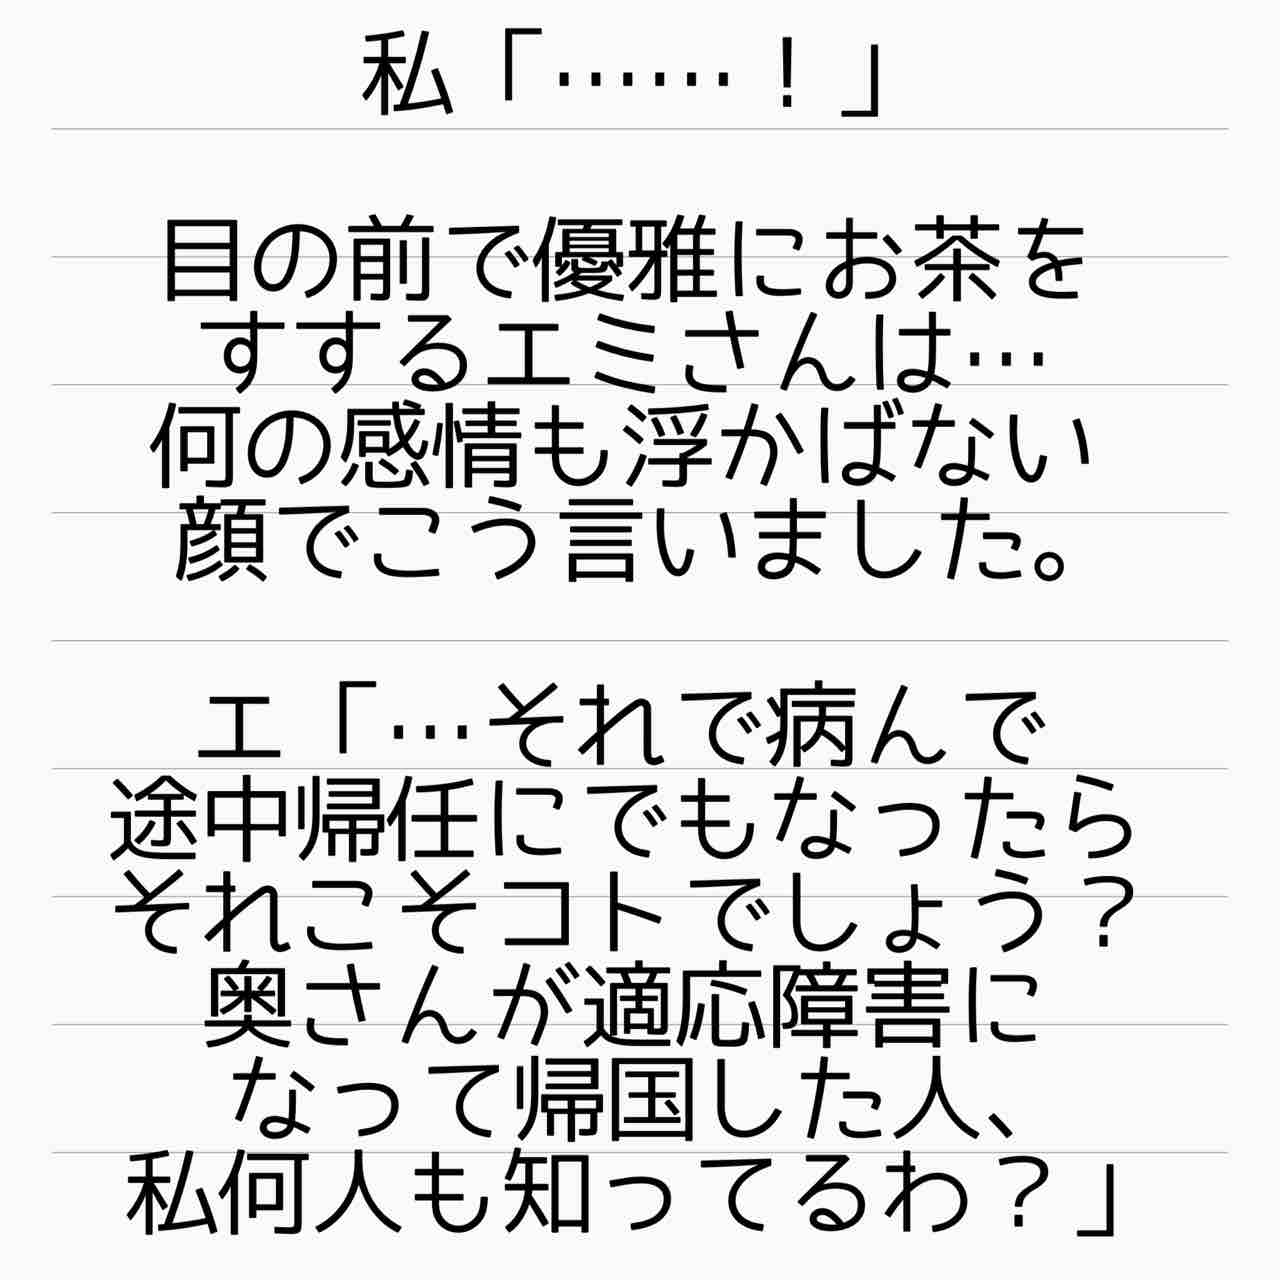 私「……！」
目の前で優雅にお茶を
すするエミさんは…
何の感情も浮かばない
顔でこう言いました。
エ「…それで病んで
途中帰任にでもなったら
それこそコトでしょう？
奥さんが適応障害に
なって帰国した人、
私何人も知ってるわ？」